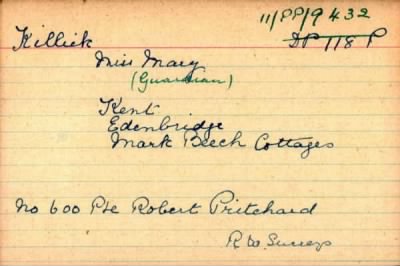 11/PP/9432
Killick DP 118 P
Miss Mary
(Guardian)
Kent
Edenbridge
Mark Beech Cottages
No 600 Pte Robert Pritchard
R. W. Surreys